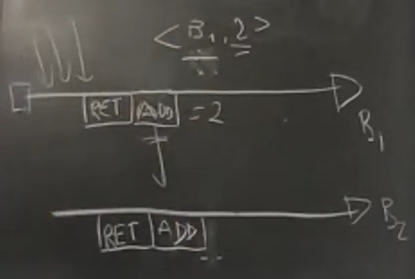 <B1, 2>
RET ADD = 2
B1
RET ADD
B2